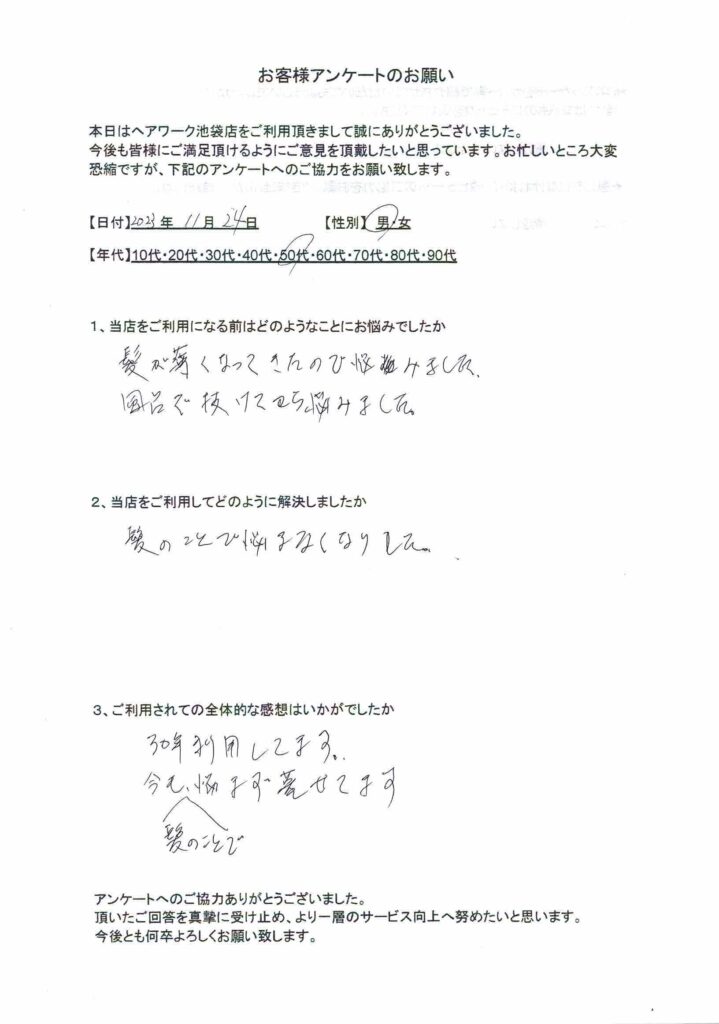 お客様アンケートのお願い
本日はヘアワーク池袋店をご利用頂きまして誠にありがとうございました。
今後も皆様にご満足頂けるようにご意見を頂戴したいと思っています。お忙しいところ大変
恐縮ですが、下記のアンケートへのご協力をお願い致します。
【日付】2023年 11月 24日 【性別】 男・女
【年代】10代・20代・30代・40代・50代・60代・70代・80代・90代
1、当店をご利用になる前はどのようなことにお悩みでしたか
髪が薄くなってきたので悩みました、
風呂で抜けて 悩みました。
2、当店をご利用してどのように解決しましたか
髪のことで悩まなくなりした。
3、ご利用されての全体的な感想はいかがでしたか
30年利用してます。
今も、悩まず せてます
髪のことで
アンケートへのご協力ありがとうございました。
頂いたご回答を真摯に受け止め、より一層のサービス向上へ努めたいと思います。
今後とも何卒よろしくお願い致します。